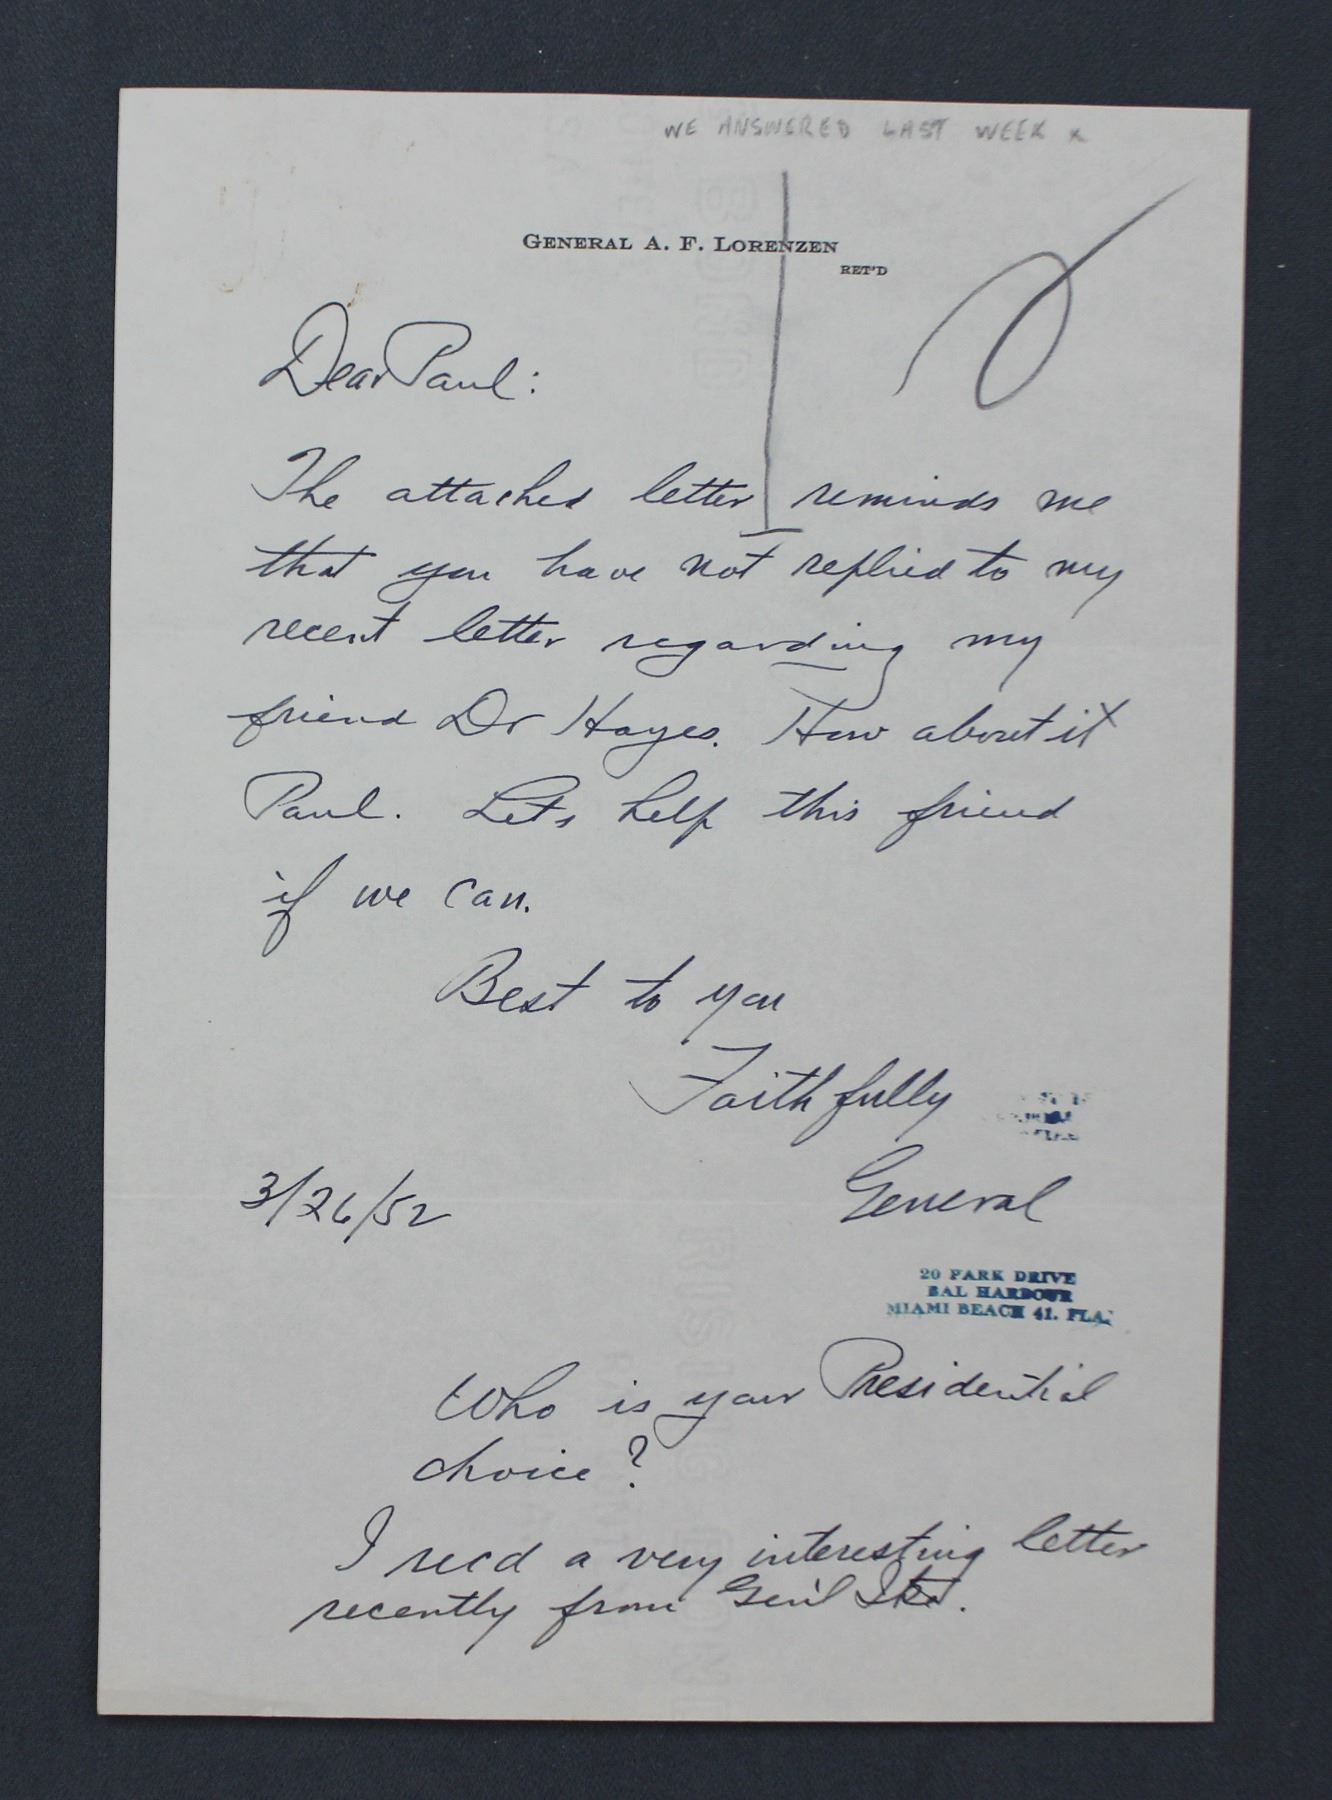 WE ANSWERED LAST WEEK x
GENERAL A. F. LORENZEN
RET'D
Dear Paul:
The attached letter reminds me
that you have not replied to my
recent letter regarding my
friend Dr Hayes. How about it
Paul. Let's help this friend
if we can.
Best to you
Faithfully
General
3/26/52
20 PARK DRIVE
BAL HARBOUR
MIAMI BEACH 41, FLA.
Who is your Presidential
choice?
I recd a very interesting letter
recently from Gen'l Ike.